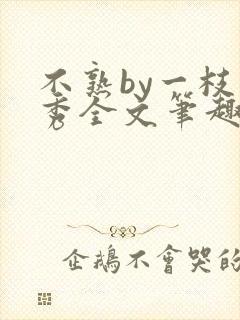 不熟by一枝
秀全文笔趣
企鵝不會哭的